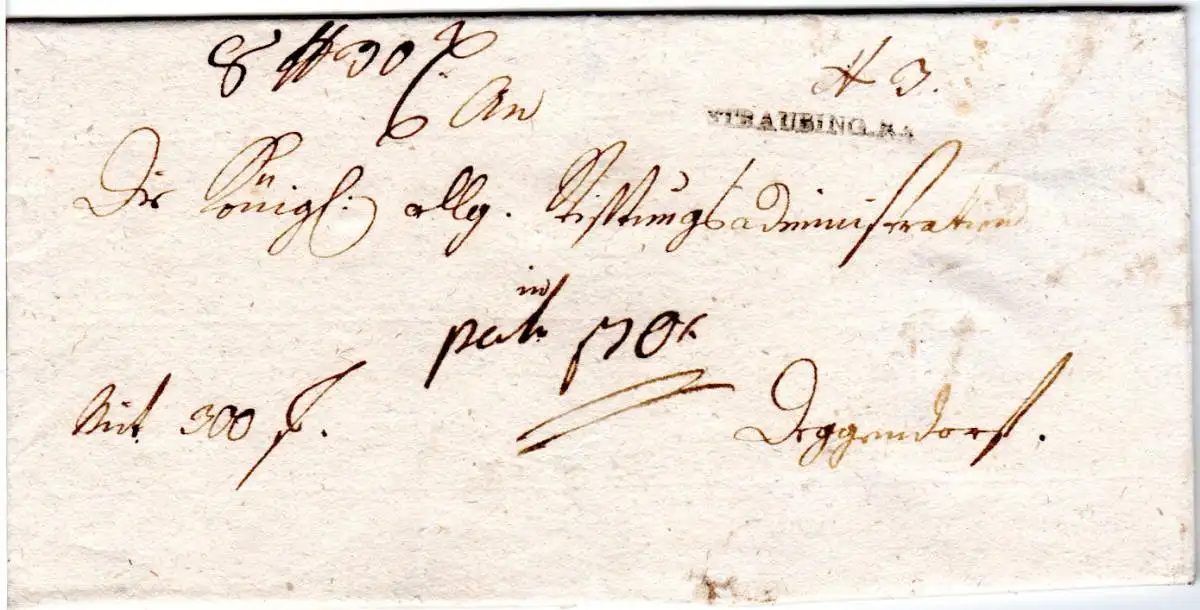 8 ℔ 30
N 3.
An
STRAUBING.
Die Königl: allg. Stiftungsadministration
in
Mit 300 f.
Deggendorf.